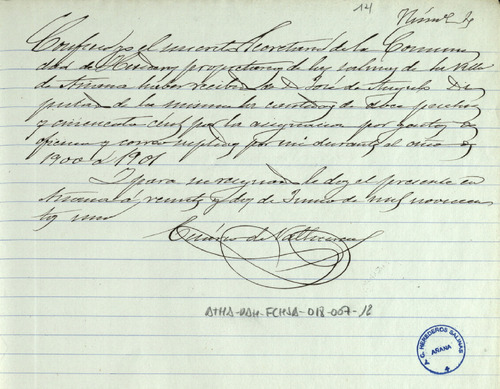 14
Núm. 2
Confieso yo el infrascrito Secretario de la Comuni
dad de Herederos propietarios de las salinas de la Villa
de Añana haber recibido de D. José de Angulo De
positario de la misma la cantidad de doce pesetas
y cincuenta cts. por la asignación por gastos de
oficina y correo suplidos por mi durante el año de
1900 a 1901
Y para su resguardo le doy el presente en
Añana á veinte y dos de Junio de mil novecien
tos uno
de
ATHA-DAH-FCHSA-018-007-12
T. C. HEREDEROS SALINAS
AÑANA